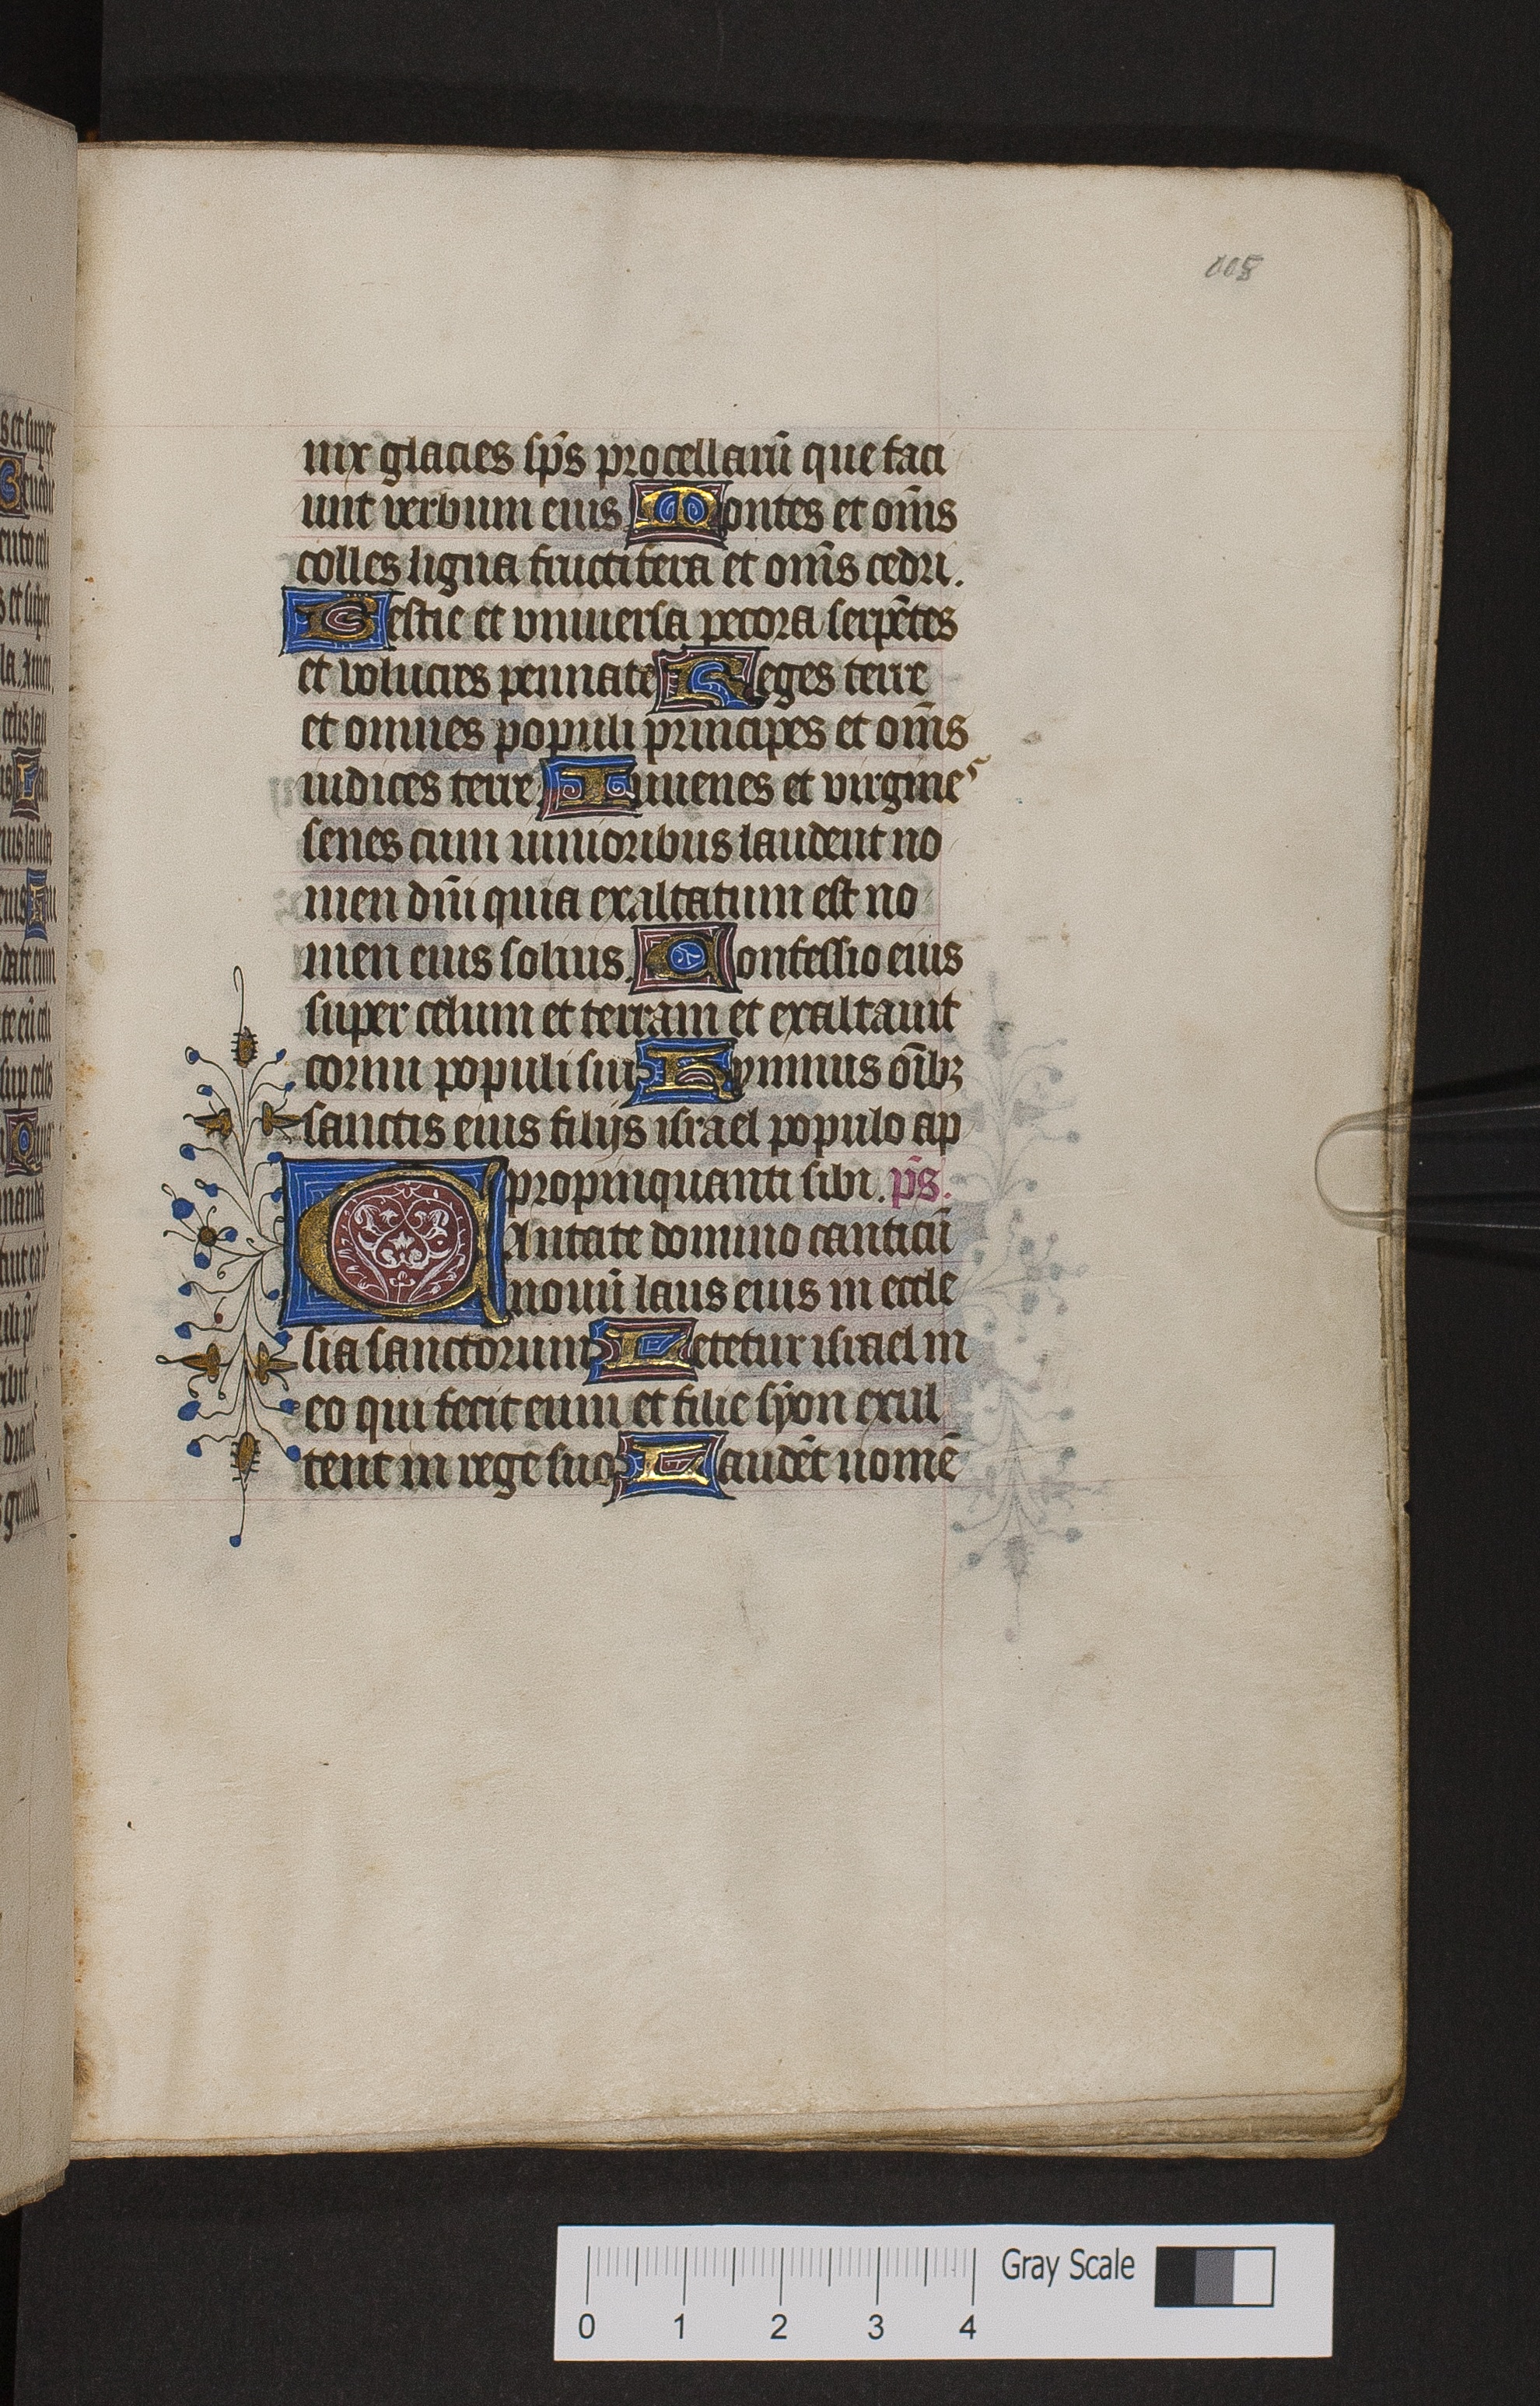 008
nix glacies sp̄s procellarū que faci
unt verbum eius Montes et om̄s
colles ligna fructifera et om̄s cedri.
Bestie et vniuersa pecora serpētes
et volucres pennate Reges terre
et omnes populi principes et om̄s
iudices terre Iuuenes et virgines
senes cum iunioribus laudent no
men dn̄i quia exaltatum est no
men eius solius. Confessio eius
super celum et terram et exaltauit
cornu populi sui Hymnus oībꝫ
sanctis eius filijs israel populo ap
propinquanti sibi. p̄s.
CAntate domino canticū
nouū laus eius in eccle
sia sanctorum Letetur israel in
eo qui fecit eum et filie syon exul
tent in rege suo Laudēt nomē
0 1 2 3 4
Gray Scale